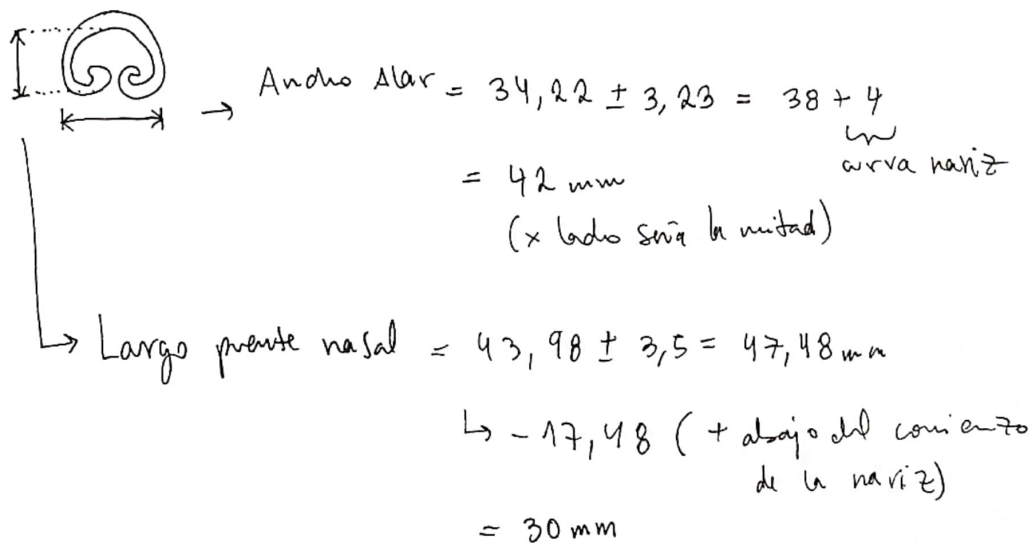 → Ancho Alar = 34,22 ± 3,23 = 38 + 4
curva nariz
= 42 mm
(x lado sería la mitad)
→ Largo puente nasal = 43,98 ± 3,5 = 47,48 mm
↳ -17,48 (+ abajo del comienzo
de la nariz)
= 30 mm